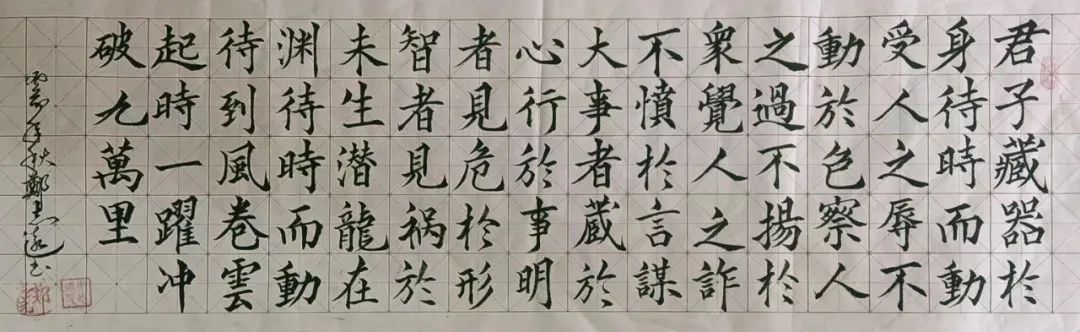 君子藏器於
身待時而動
受人之辱不
動於色察人
之過不揚於
衆覺人之詐
不憤於言謀
大事者蔵於
心行於事明
者見危於形
智者見祸於
未生潜龍在
渊待時而動
待到風卷雲
起時一躍冲
破九萬里
年秋鄭志遠书